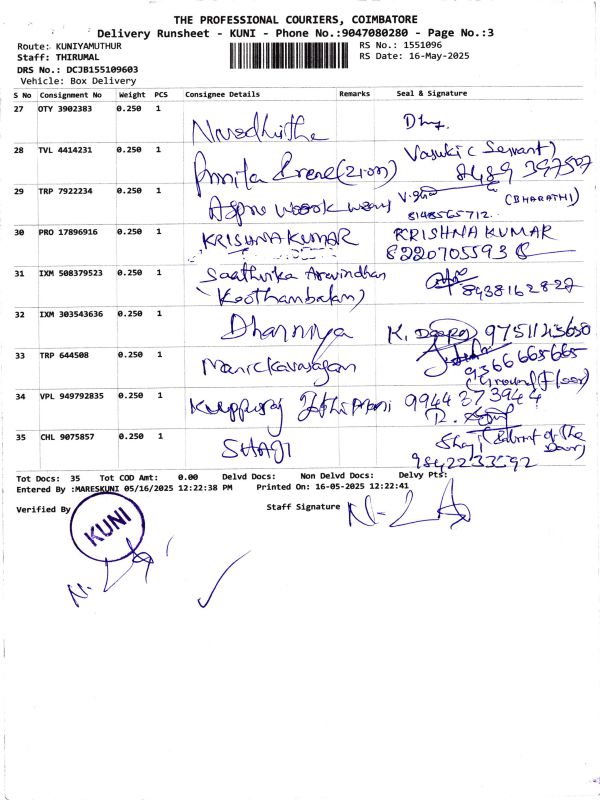 THE PROFESSIONAL COURIERS, COIMBATORE
Delivery Runsheet - KUNI - Phone No.:9047080280 - Page No.:3
Route: KUNIYAMUTHUR RS No.: 1551096
Staff: THIRUMAL RS Date: 16-May-2025
DRS No.: DCJB155109603
Vehicle: Box Delivery
S No Consignment No Weight PCS Consignee Details Remarks Seal & Signature
27 OTY 3902383 0.250 1
28 TVL 4414231 0.250 1 Vasuki (Servant)
29 TRP 7922234 0.250 1 (BHARATHI)
8148565712
30 PRO 17896916 0.250 1 KRISHNAKUMAR KRISHNA KUMAR
8220705593
31 IXM 508379523 0.250 1 Saathvika Aravindhan
(Koothambalam) 8438162827
32 IXM 303543636 0.250 1 Dhannya K.
33 TRP 644508 0.250 1 Manickavasagam 9366665665
(Ground Floor)
34 VPL 949792835 0.250 1 Kuppuraj Jothimani 9944373944
35 CHL 9075857 0.250 1 SHAJI Shaji
9842233592
Tot Docs: 35 Tot COD Amt: 0.00 Delvd Docs: Non Delvd Docs: Delvy Pts:
Entered By :MARESKUNI 05/16/2025 12:22:38 PM Printed On: 16-05-2025 12:22:41
Verified By KUNI Staff Signature